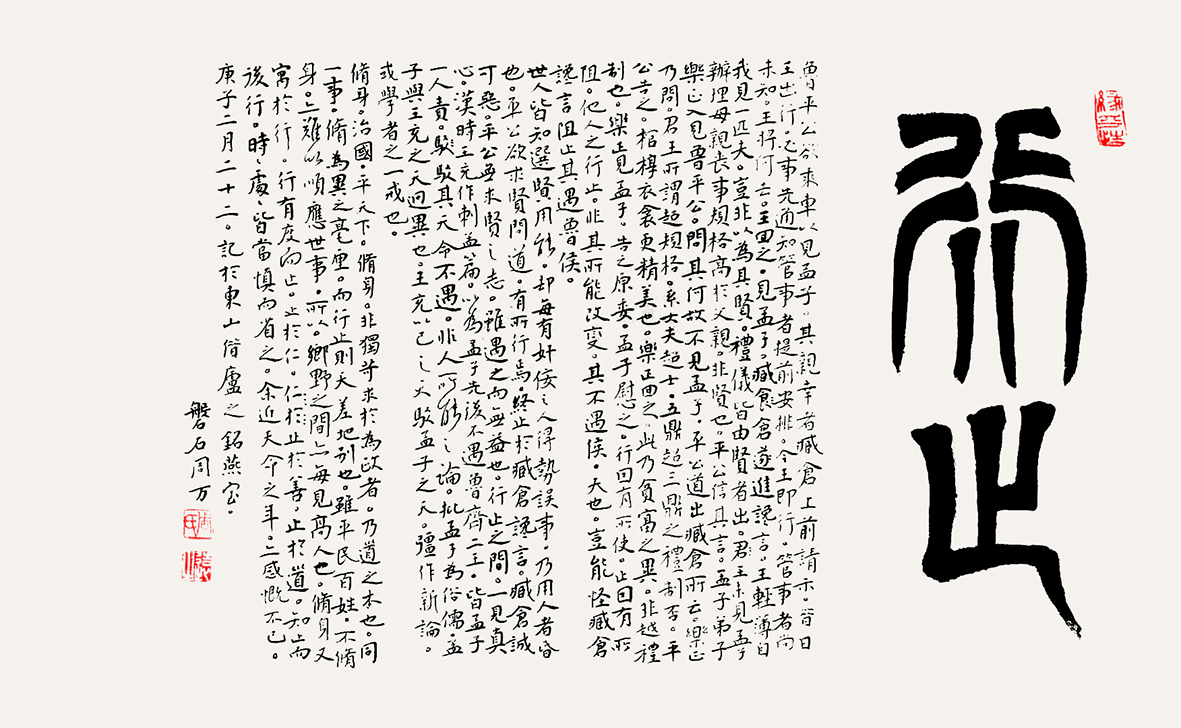 行止
魯平公欲乘車以見孟子。其親幸者臧倉上前請示。昔日
王出行。必事先通知管事者提前安排。今王即行。管事者尚
未知。王將何去。王回之。見孟子。臧倉遂進讒言。王輕薄自
我見一匹夫。豈非以為其賢。禮儀皆由賢者出。君王未見孟子
辦理母親喪事規格高於父親。非賢也。平公信其言。孟子弟子
樂正入見魯平公。問其何故不見孟子。平公道出臧倉所云。樂正
乃問。君王所謂超規格。系士大夫超士。五鼎超三鼎之禮制否。平
公告之。棺槨衣衾更精美也。樂正回之。此乃貧富之異。非越禮
制也。樂正見孟子。告之原委。孟子慰之。行回有所使。止回有所
阻。他人之行止。非其所能改變。其不遇侯。天也。豈能怪臧倉
讒言阻止其遇魯侯。
世人皆知選賢用能。却每有奸佞之人得勢誤事。乃用人者昏
也。平公欲求賢問道。有所行焉。終止於臧倉讒言。臧倉誠
可惡。平公無求賢之志。雖遇之而無益也。行止之間。一見真
心。漢時王充作刺孟篇。以為孟子先後不遇魯齊二王。皆孟子
一人責。駁駁其。天命不遇。非人所能之論。批孟子為俗儒。孟
子與王充之天迥異也。王充以己之天駁孟子之天。彊作新論。
或學者之一戒也。
脩身。治國。平天下。脩身。非獨苛求於為政者。乃道之本也。同
一事。脩為異之毫厘。而行止則天差地別也。雖平民百姓。不脩
身。亦難以順應世事。所以鄉野之間亦每見高人也。脩身又
寓於行。行有度向止。止於仁。仁於止於善。止於道。知止而
後行。時時處處皆當慎而省之。余近天命之年。亦感慨不已。
庚子二月二十二。記於東山俗廬之銘燕室。
磐石周万